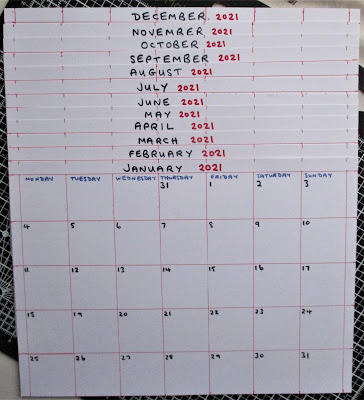 DECEMBER 2021
NOVEMBER 2021
OCTOBER 2021
SEPTEMBER 2021
AUGUST 2021
JULY 2021
JUNE 2021
MAY 2021
APRIL 2021
MARCH 2021
FEBRUARY 2021
JANUARY 2021
MONDAY TUESDAY WEDNESDAY THURSDAY FRIDAY SATURDAY SUNDAY
31 1 2 3
4 5 6 7 8 9 10
11 12 13 14 15 16 17
18 19 20 21 22 23 24
25 26 27 28 29 30 31